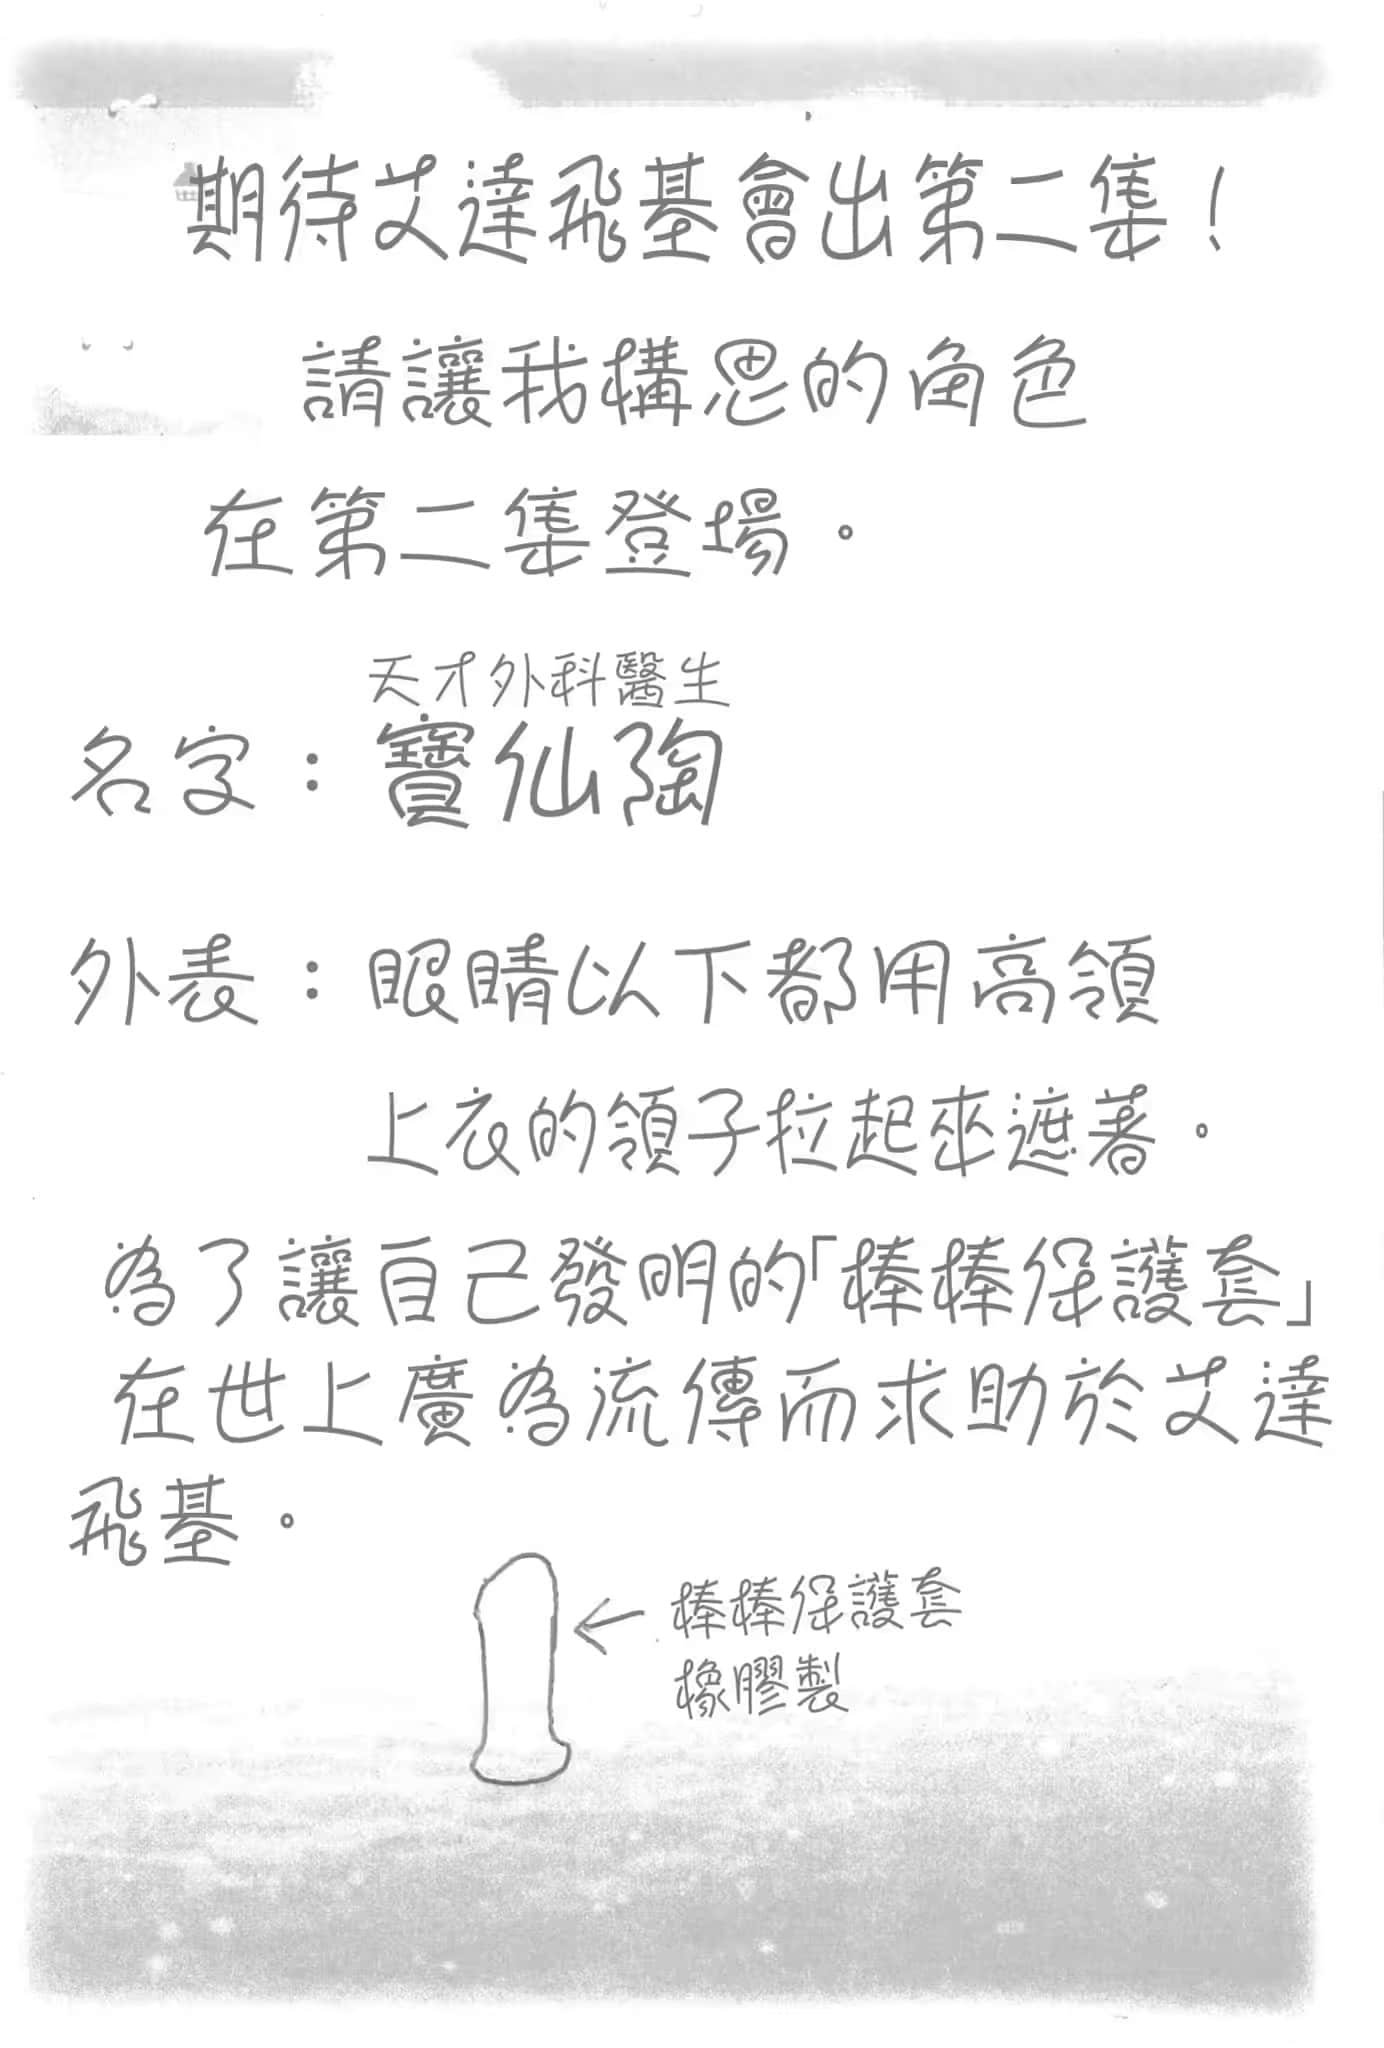 期待艾達飛基會出第二集！
請讓我構思的角色
在第二集登場。
天才外科醫生
名字：寶仙陶
外表：眼睛以下都用高領
上衣的領子拉起來遮著。
為了讓自己發明的「棒棒保護套」
在世上廣為流傳而求助於艾達
飛基。
棒棒保護套
橡膠製